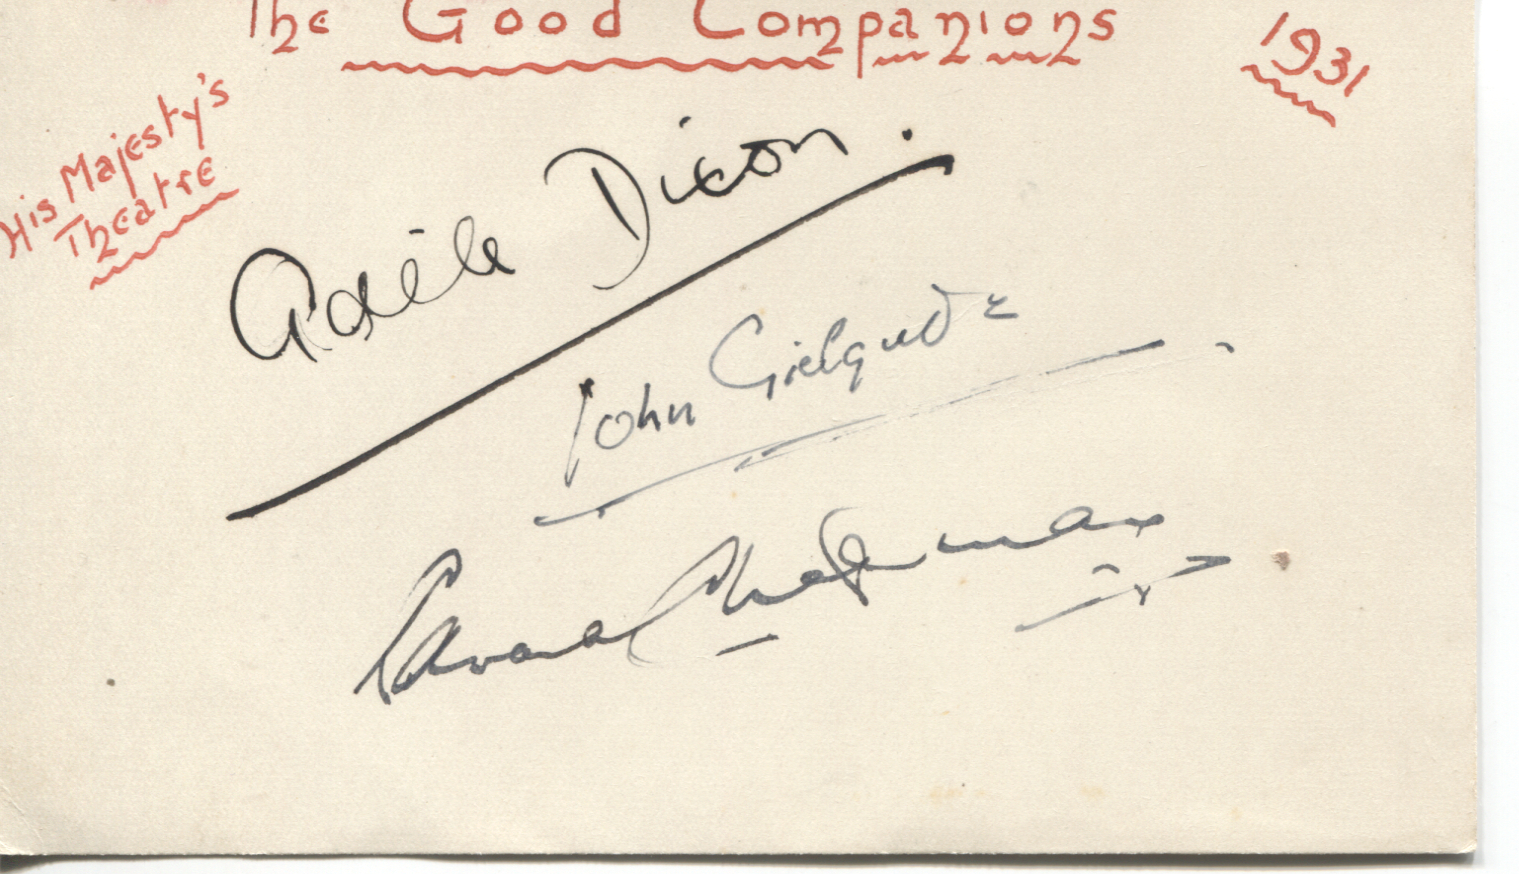 The Good Companions
1931
His Majesty's
Theatre
Adèle Dixon.
John Gielgud
Edward Chapman